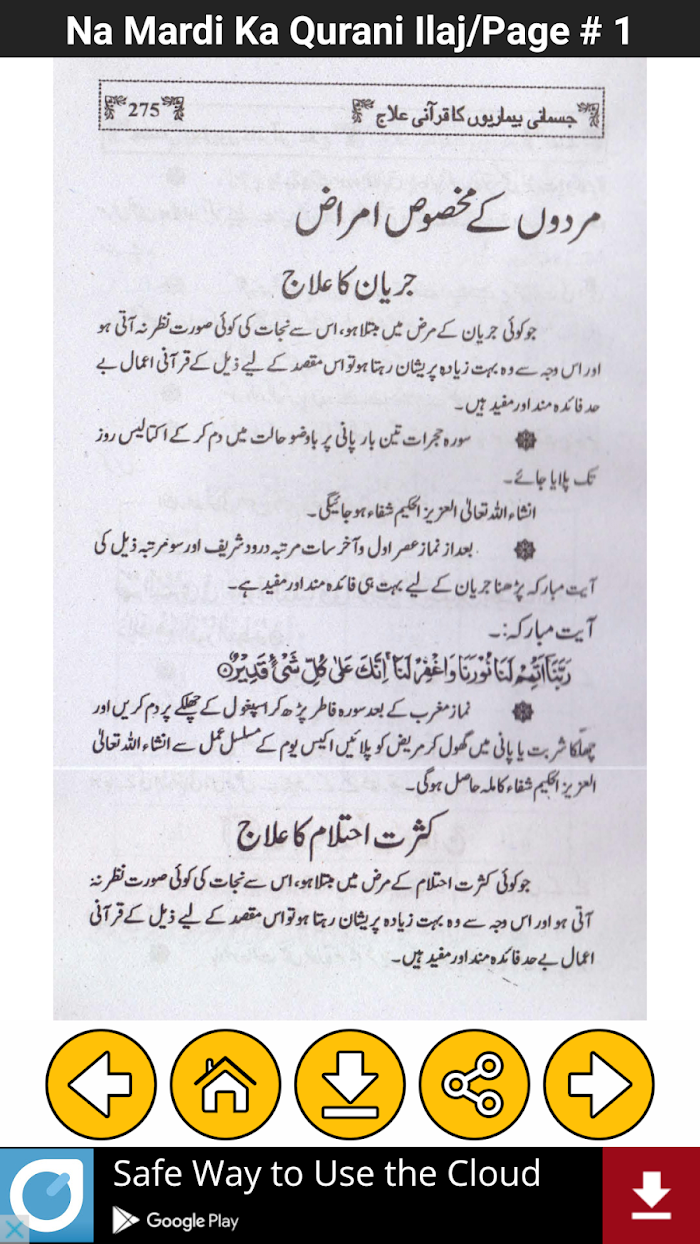 Na Mardi Ka Qurani Ilaj/Page # 1
جسمانی بیماریوں کا قرآنی علاج 275
مردوں کے مخصوص امراض
جریان کا علاج
جو کوئی جریان کے مرض میں مبتلا ہو، اس سے نجات کی کوئی صورت نظر نہ آتی ہو
اور اس وجہ سے وہ بہت زیادہ پریشان رہتا ہو تو اس مقصد کے لیے ذیل کے قرآنی اعمال بے
حد فائدہ مند اور مفید ہیں۔
سورہ حجرات تین بار پانی پر باوضو حالت میں دم کر کے اکتالیس روز
تک پلایا جائے۔
انشاء اللہ تعالیٰ العزیز الحکیم شفاء ہو جائیگی۔
بعد از نماز عصر اول و آخر سات مرتبہ درود شریف اور سو مرتبہ ذیل کی
آیت مبارکہ پڑھنا جریان کے لیے بہت ہی فائدہ مند اور مفید ہے۔
آیت مبارکہ:۔
رَبَّنَا اَتْمِمْ لَنَا نُوْرَنَا وَاغْفِرْ لَنَا اِنَّكَ عَلٰی كُلِّ شَیْءٍ قَدِیْرٌ
نماز مغرب کے بعد سورہ فاطر پڑھ کر اسپغول کے چھلکے پر دم کریں اور
چھلکا شربت یا پانی میں گھول کر مریض کو پلائیں اکیس یوم کے مسلسل عمل سے انشاء اللہ تعالیٰ
العزیز الحکیم شفاء کاملہ حاصل ہوگی۔
کثرت احتلام کا علاج
جو کوئی کثرت احتلام کے مرض میں مبتلا ہو، اس سے نجات کی کوئی صورت نظر نہ
آتی ہو اور اس وجہ سے وہ بہت زیادہ پریشان رہتا ہو تو اس مقصد کے لیے ذیل کے قرآنی
اعمال بے حد فائدہ مند اور مفید ہیں۔
Safe Way to Use the Cloud
Google Play